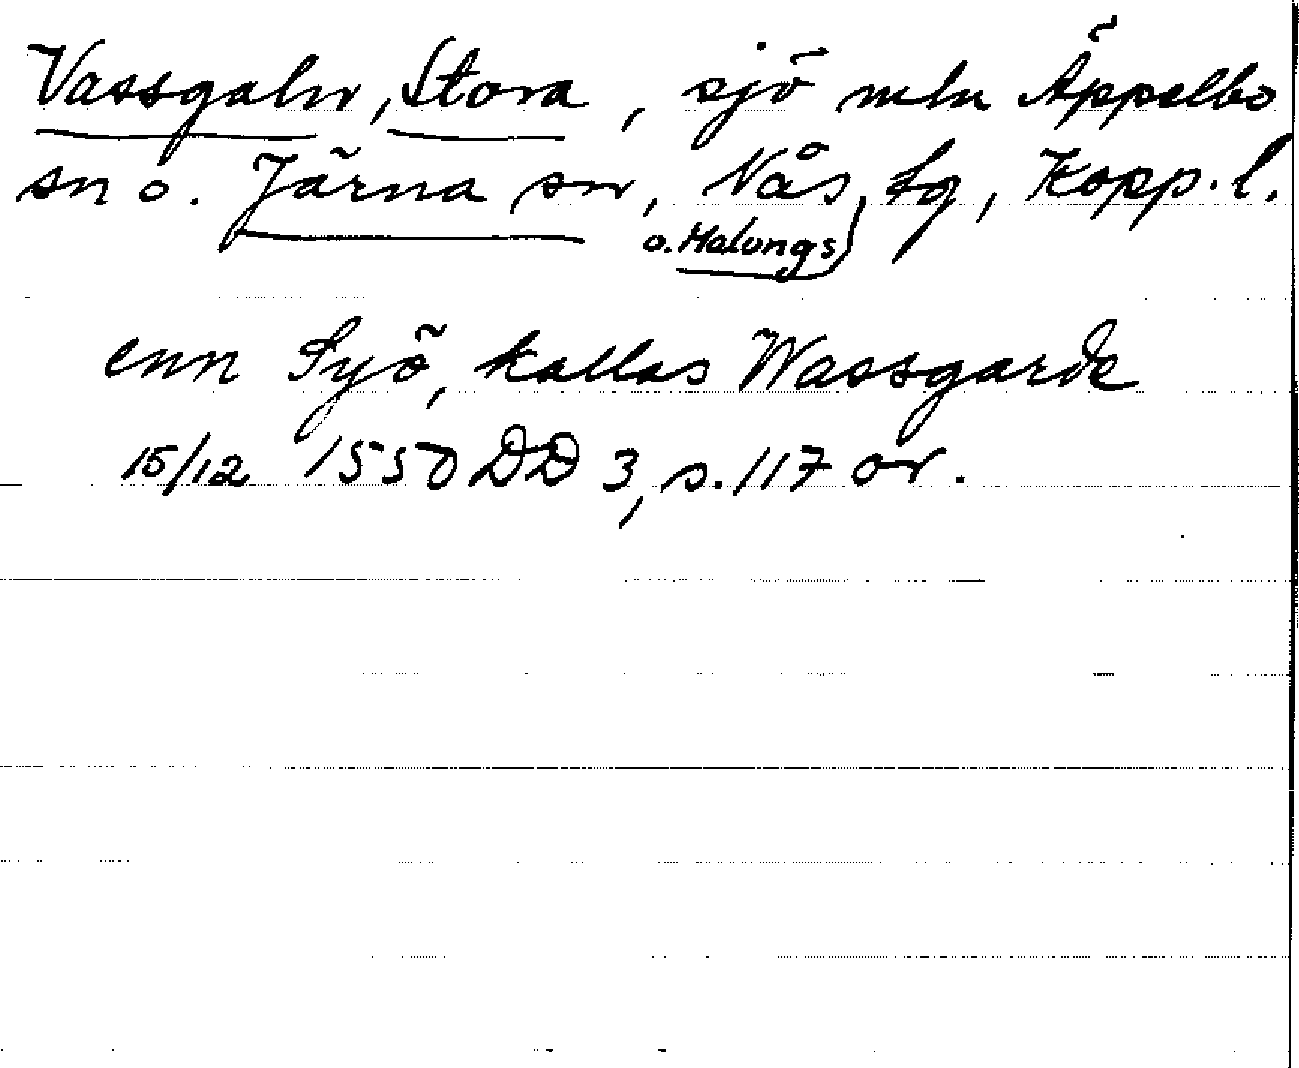 Vassgaln, Stora, sjö mln Äppelbo
sn o. Järna sn, Nås o. Malungs tg, Kopp. l.
enn Syö, kallas Wassgarde
15/12 1550 DD 3, s. 117 or.